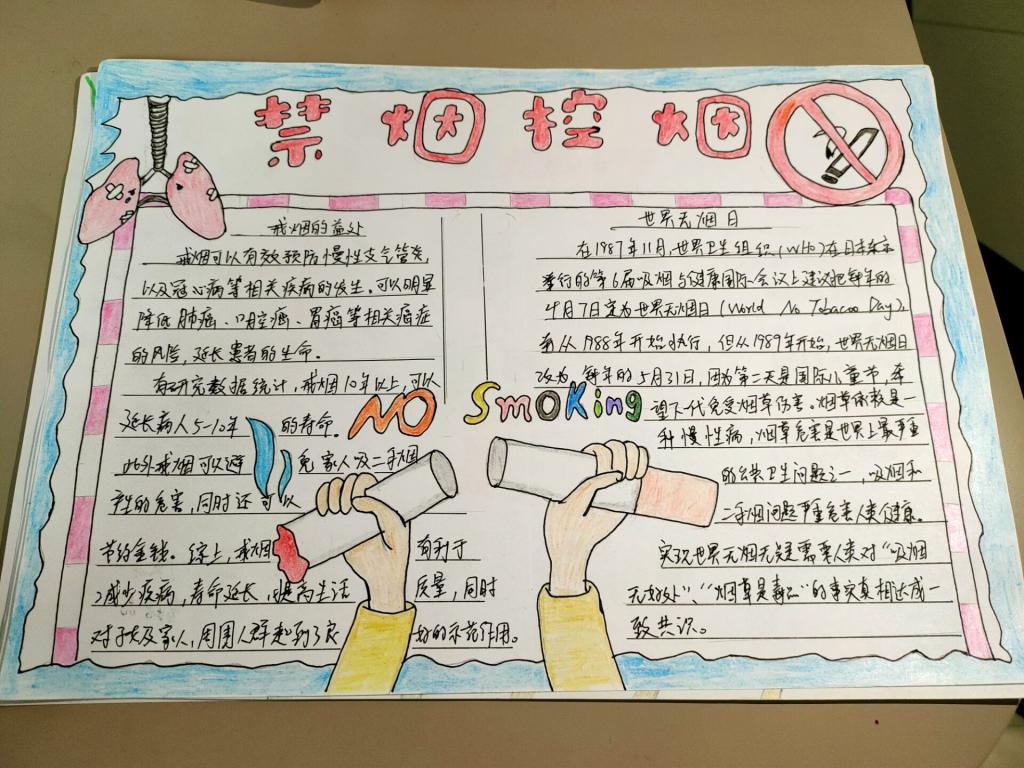 禁烟控烟
戒烟的益处
戒烟可以有效预防慢性支气管炎,
以及冠心病等相关疾病的发生。可以明显
降低肺癌、口腔癌、胃癌等相关癌症
的风险,延长患者的生命。
有研究数据统计,戒烟10年以上,可以
延长病人5-10年的寿命。
此外戒烟可以避免家人及二手烟
产生的危害,同时还可以
节约金钱。综上,戒烟有利于
减少疾病,寿命延长,提高生活质量,同时
对子女及家人,周围人群起到了良好的示范作用。
NO Smoking
世界无烟日
在1987年11月,世界卫生组织(WHO)在日本东京
举行的第6届吸烟与健康国际会议上建议把每年的
4月7日定为世界无烟日(World No Tobacoo Day),
并从1988年开始执行,但从1989年开始,世界无烟日
改为每年的5月31日,因为第二天是国际儿童节,希
望下一代免受烟草伤害。烟草依赖是一
种慢性病,烟草危害是世界上最严重
的公共卫生问题之一,吸烟和
二手烟问题严重危害人类健康。
实现世界无烟无疑需要人类对“吸烟
无好处”、“烟草是毒品”的事实真相达成一
致共识。